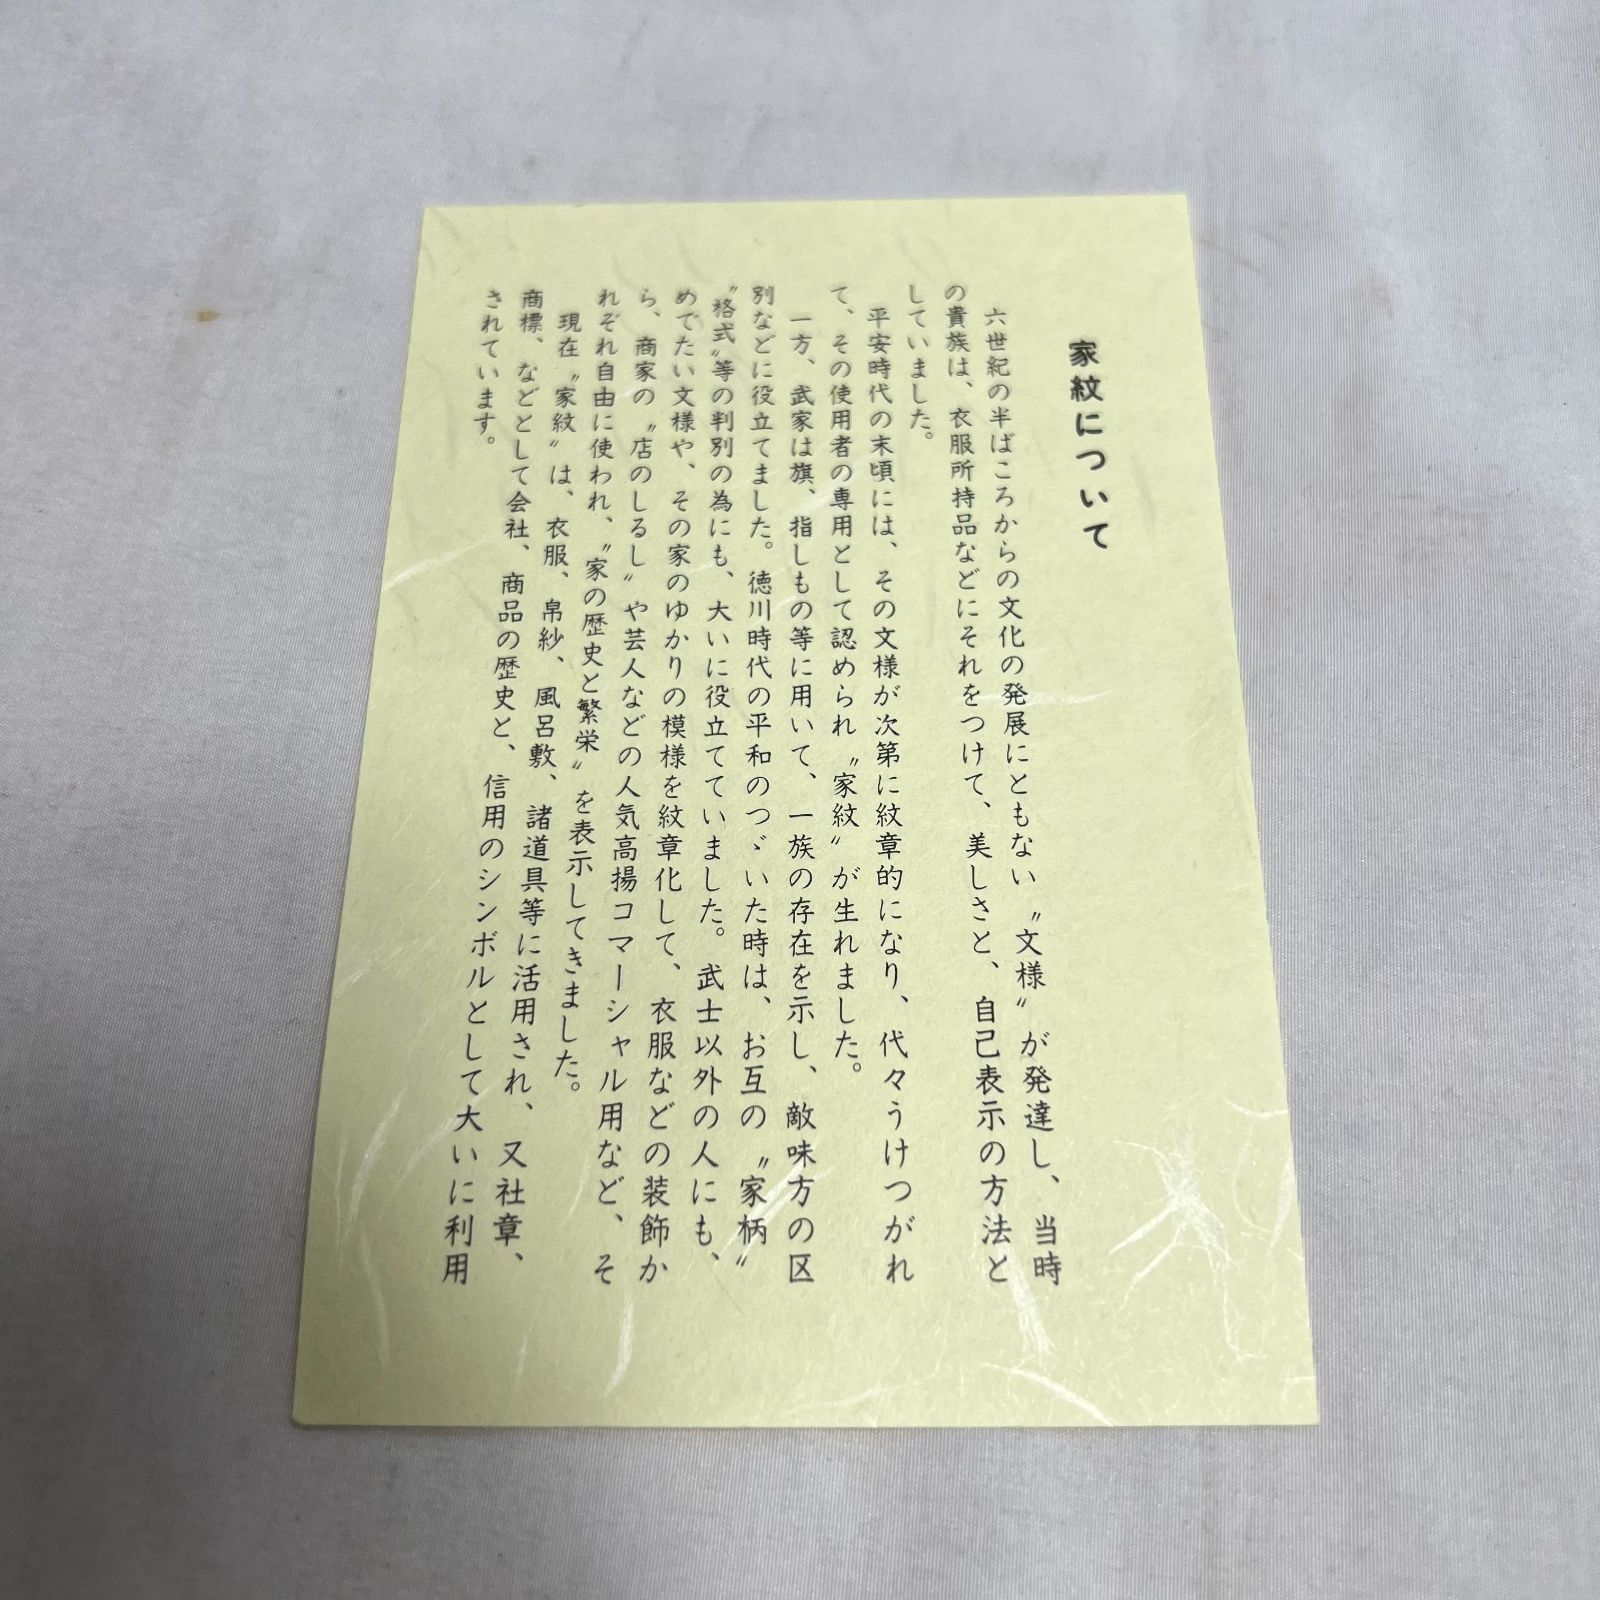 家紋について
六世紀の半ばころからの文化の発展にともない〝文様〟が発達し、当時
の貴族は、衣服所持品などにそれをつけて、美しさと、自己表示の方法と
していました。
平安時代の末頃には、その文様が次第に紋章的になり、代々うけつがれ
て、その使用者の専用として認められ〝家紋〟が生れました。
一方、武家は旗、指しもの等に用いて、一族の存在を示し、敵味方の区
別などに役立てました。徳川時代の平和のつゞいた時は、お互の〝家柄〟
〝格式〟等の判別の為にも、大いに役立てていました。武士以外の人にも、
めでたい文様や、その家のゆかりの模様を紋章化して、衣服などの装飾か
ら、商家の〝店のしるし〟や芸人などの人気高揚コマーシャル用など、そ
れぞれ自由に使われ、〝家の歴史と繁栄〟を表示してきました。
現在〝家紋〟は、衣服、帛紗、風呂敷、諸道具等に活用され、又社章、
商標、などとして会社、商品の歴史と、信用のシンボルとして大いに利用
されています。